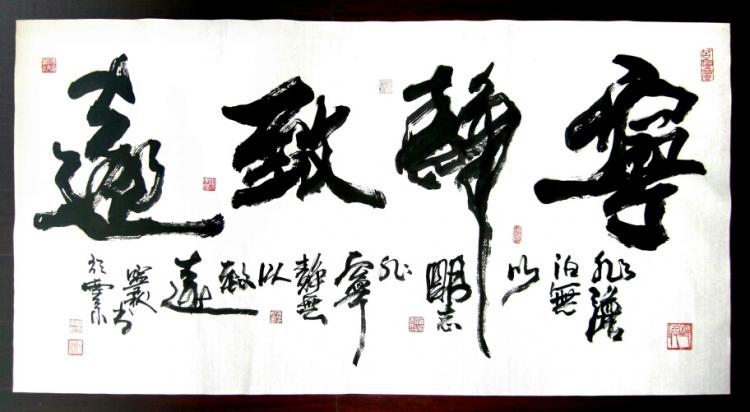 寧靜致遠
非澹
泊無
以
明志
非
寧
靜無
以
致
遠
書
於雲